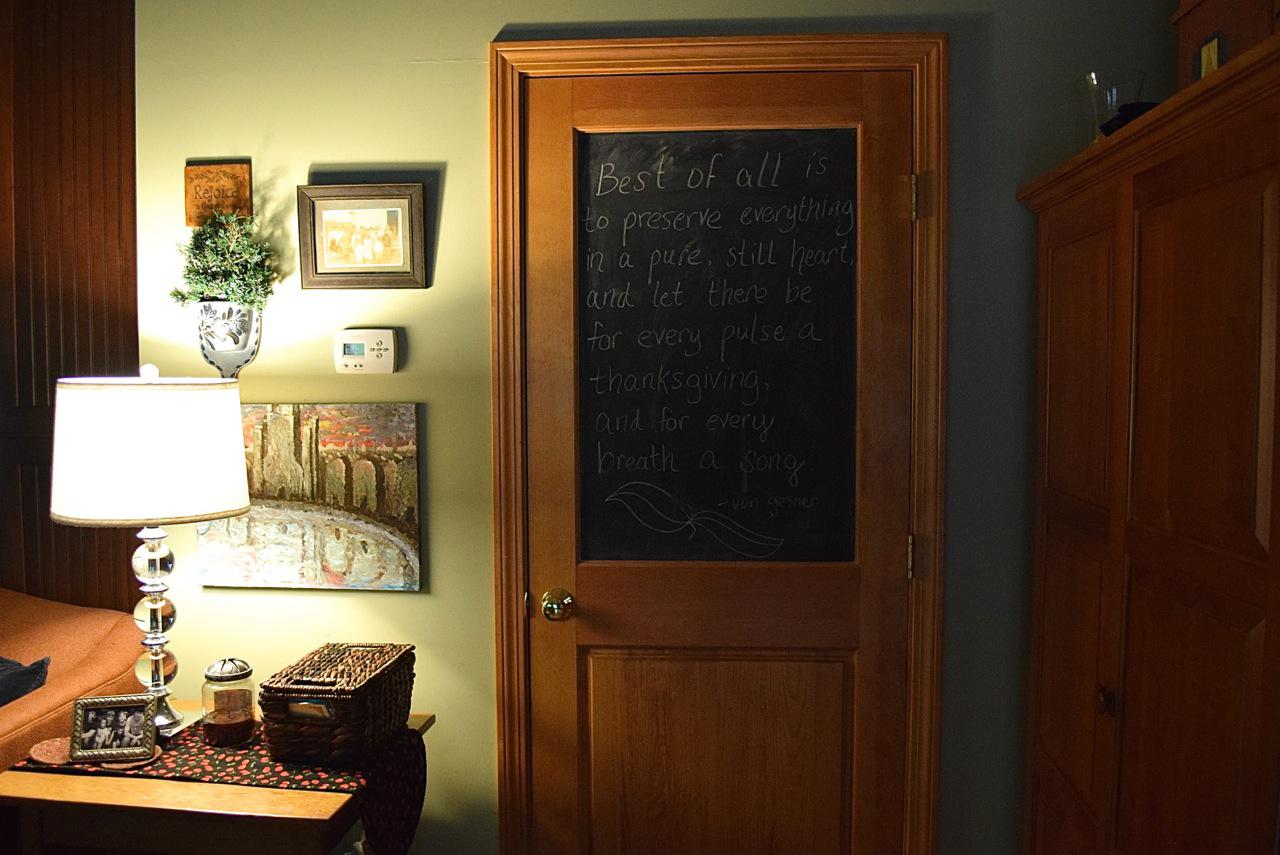 Rejoice
Best of all is
to preserve everything
in a pure, still heart,
and let there be
for every pulse a
thanksgiving,
and for every
breath a song
- von gesner